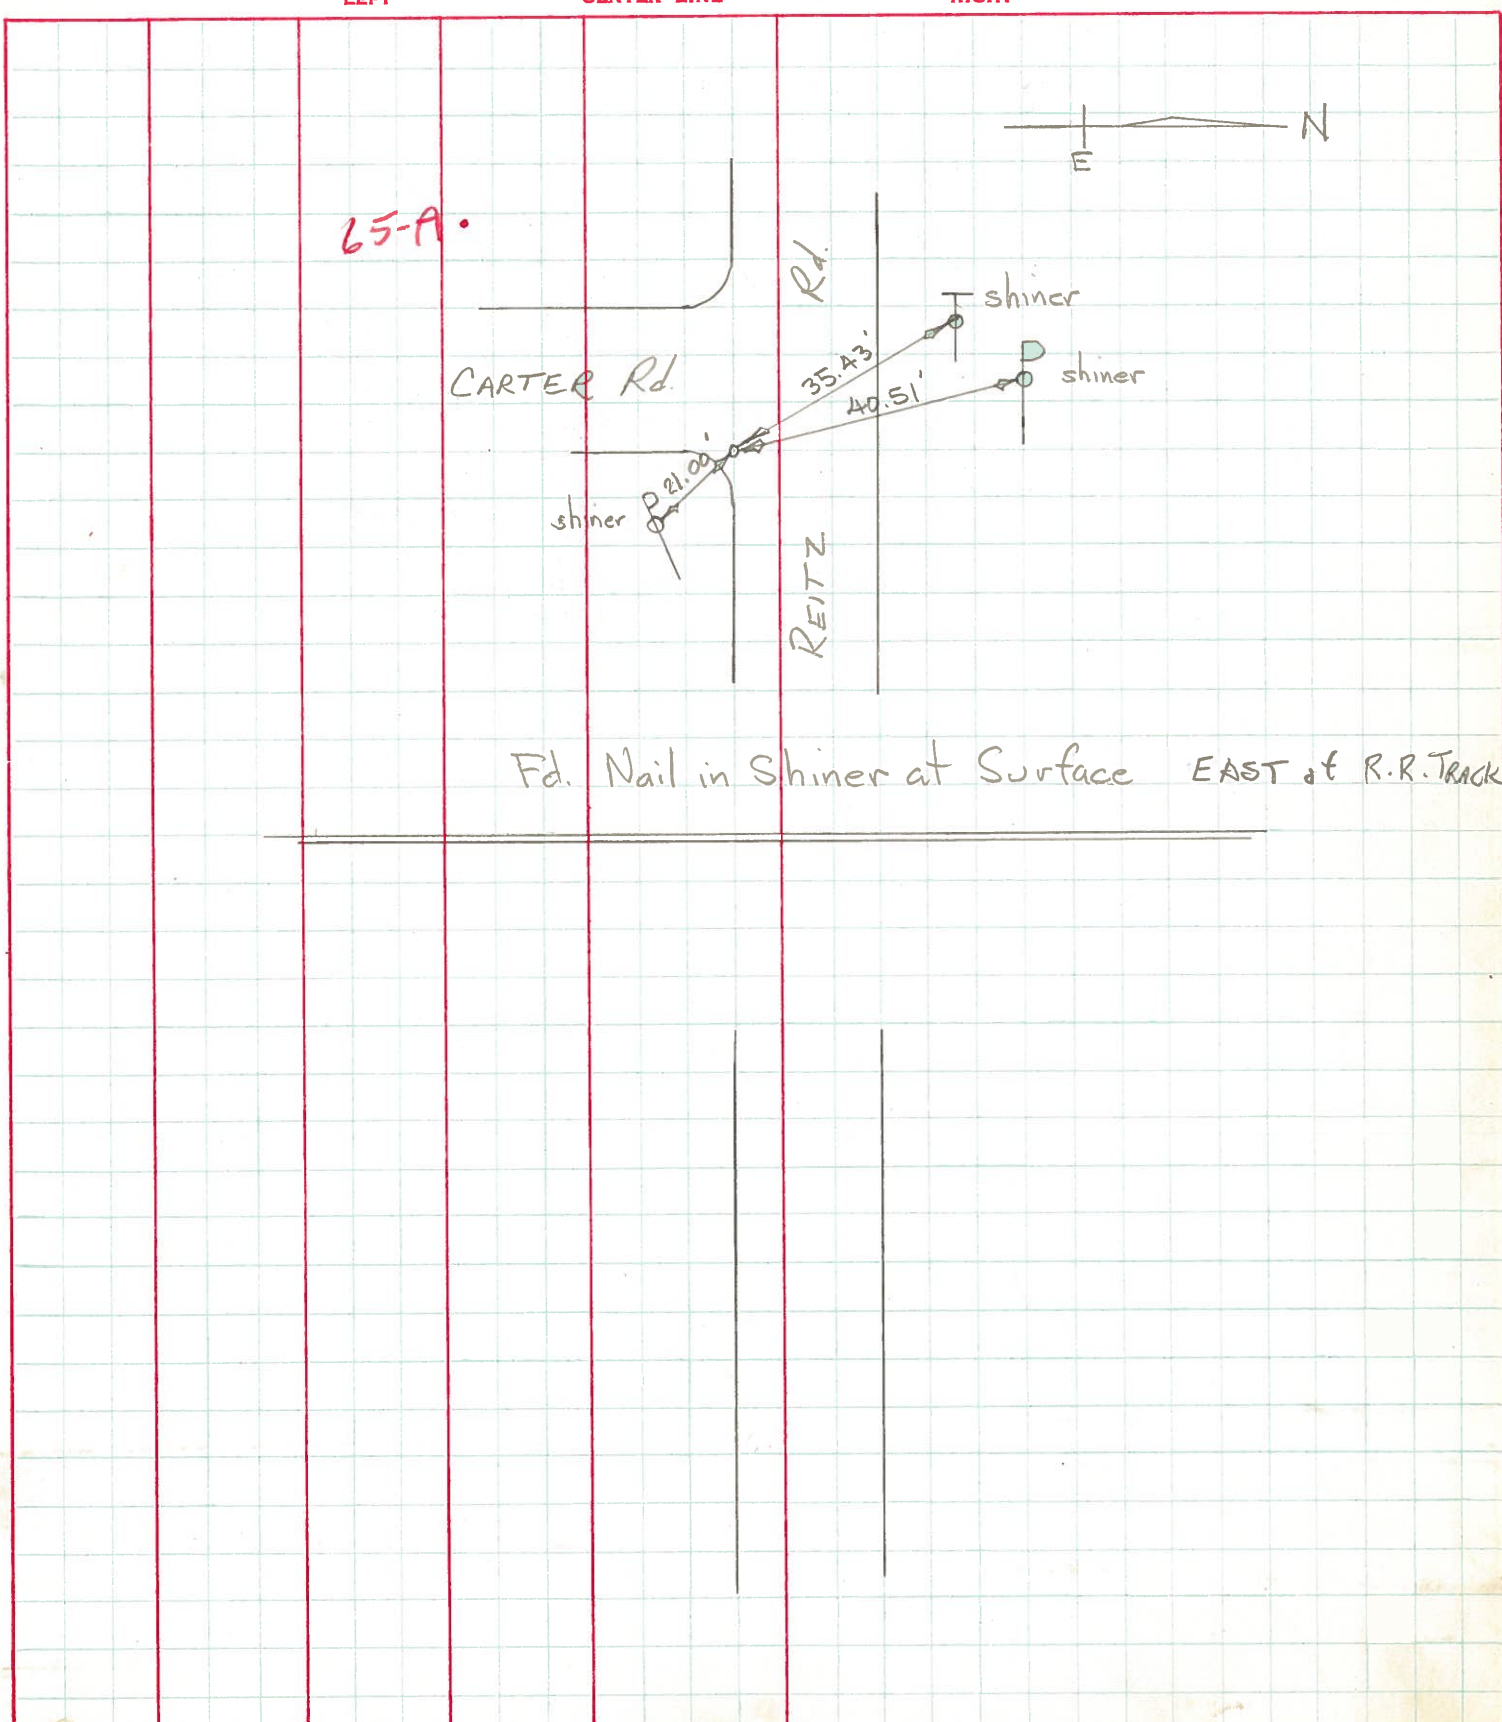 N
E
65-A.
Rd.
shiner
35.43'
P
shiner
CARTER Rd.
40.51'
21.00'
P
shiner
REITZ
Fd. Nail in Shiner at Surface EAST of R.R. TRACK